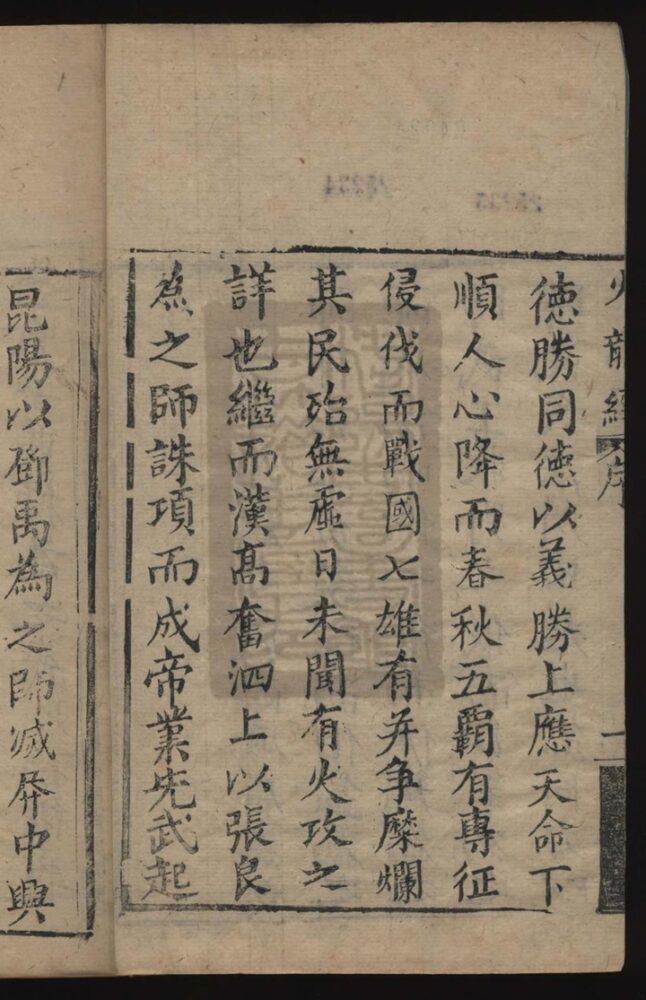 火龍經 序 一
德勝同德以義勝上應天命下
順人心降而春秋五覇有專征
侵伐而戰國七雄有并争糜爛
其民殆無虛日未聞有火攻之
詳也繼而漢髙奮泗上以張良
為之師誅項而成帝業光武起
昆陽以鄧禹為之師滅莽中興